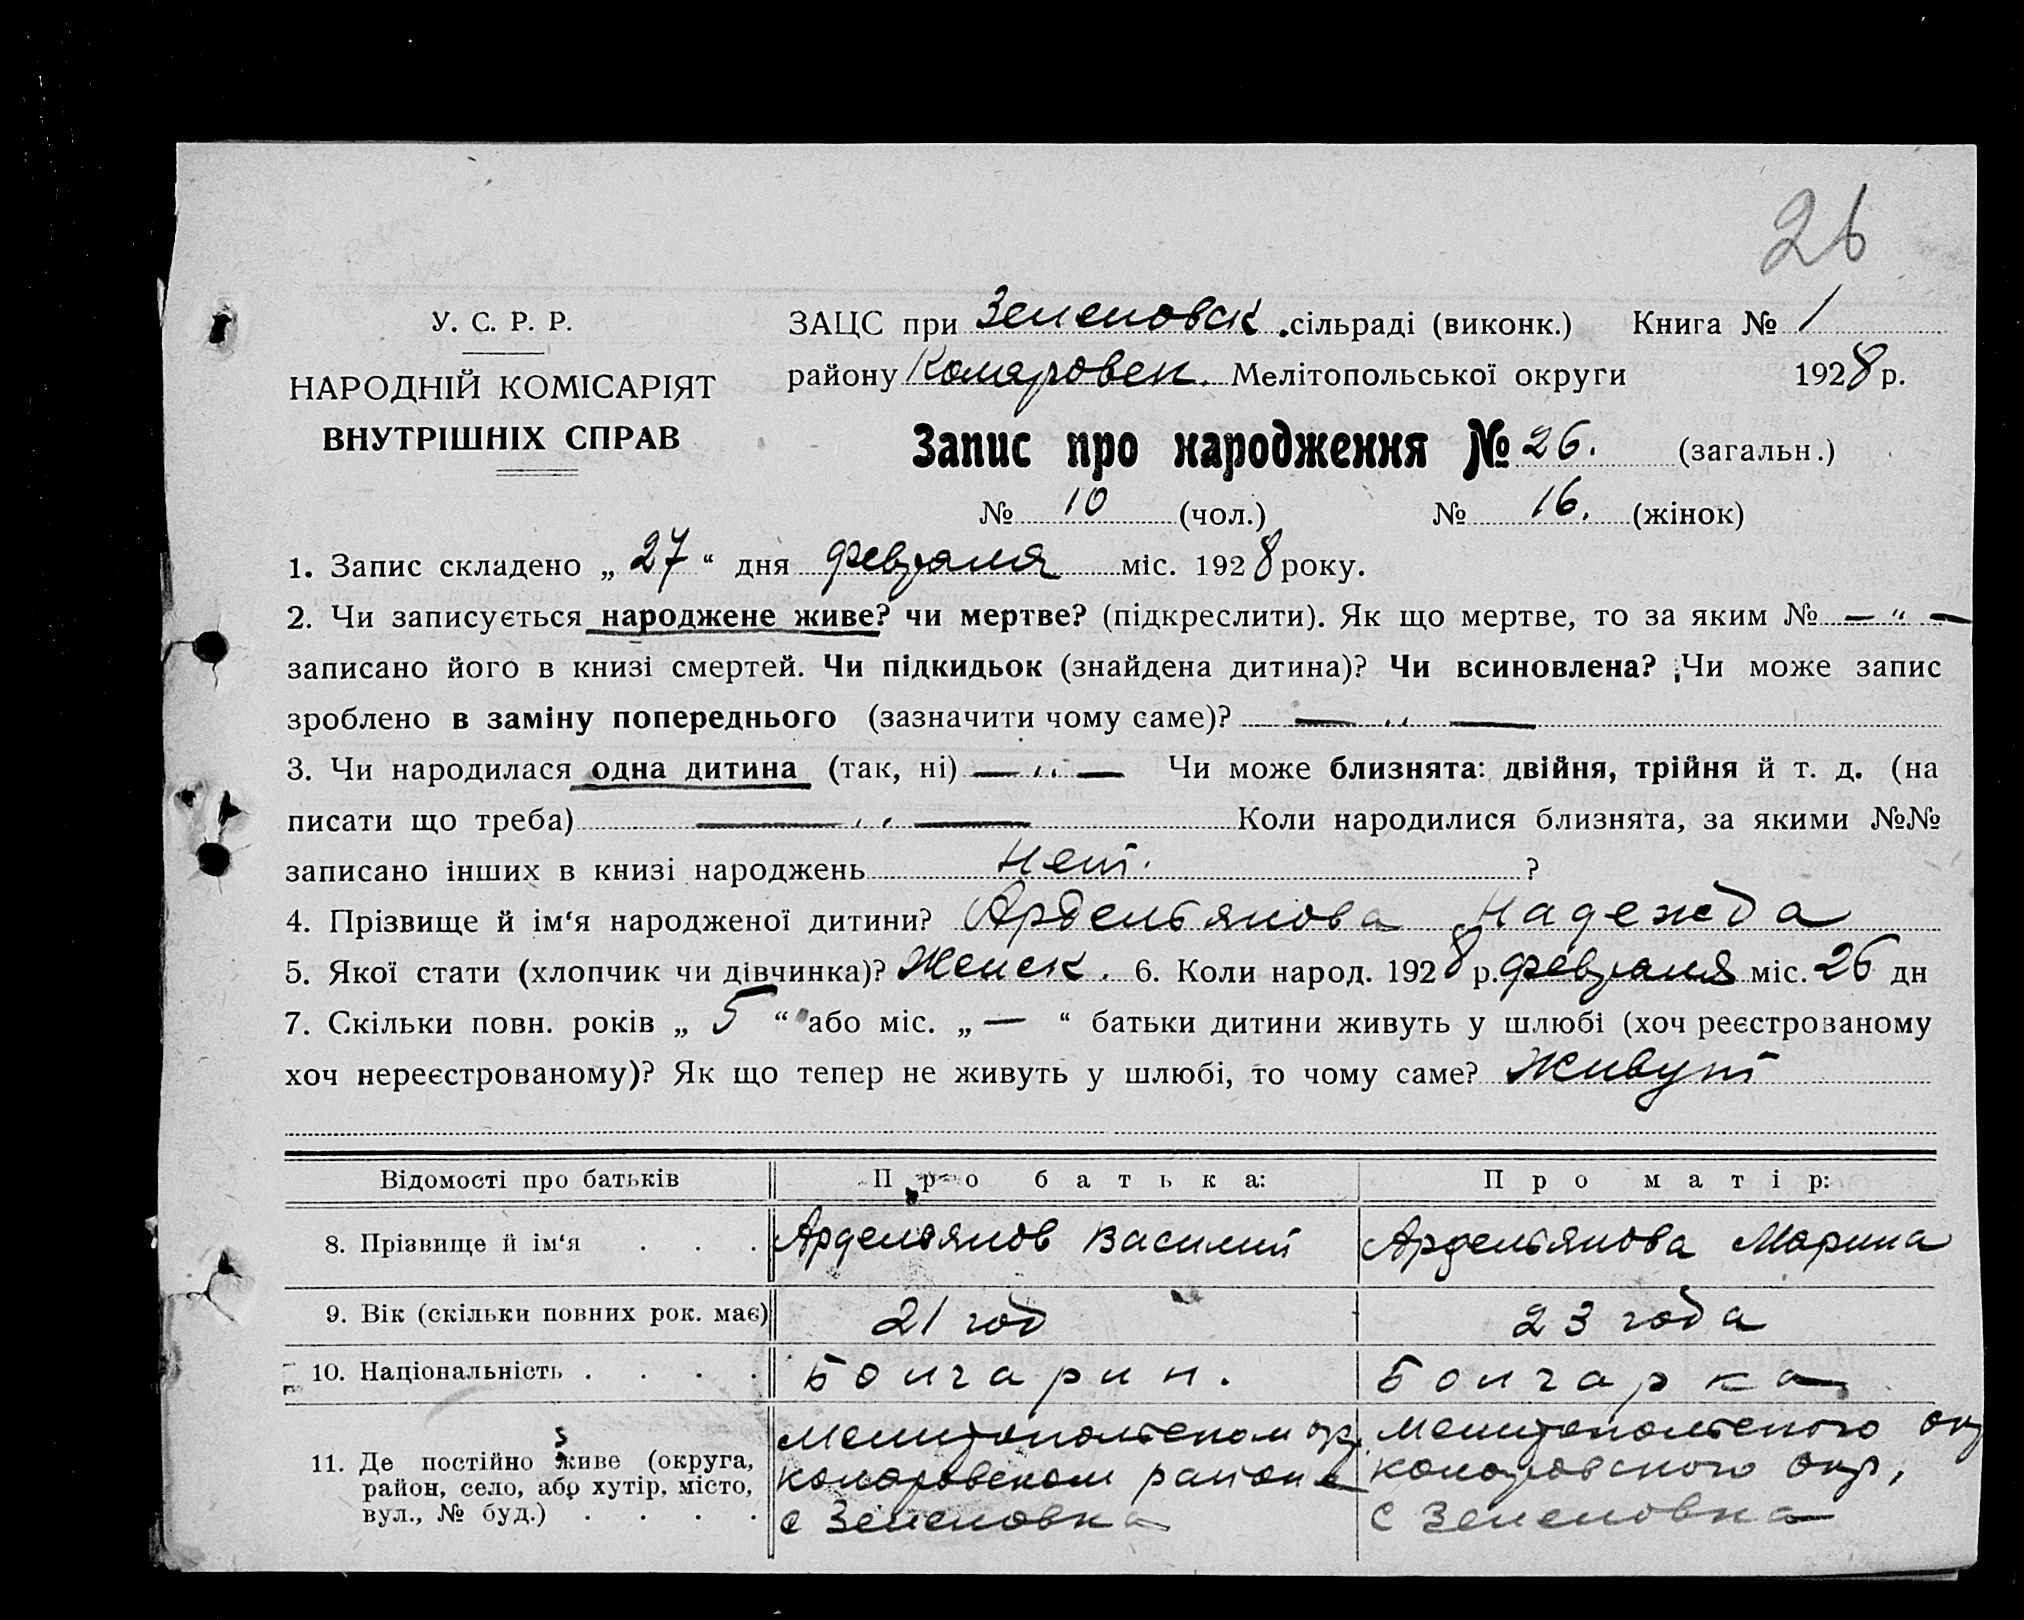 26
У. С. Р. Р.
НАРОДНІЙ КОМІСАРІЯТ
ВНУТРІШНІХ СПРАВ
ЗАЦС при Зеленовск. сільраді (виконк.) Книга № 1
району Комаровск. Мелітопольської округи 1928 р.
Запис про народження № 26. (загальн.)
№ 10 (чол.) № 16. (жінок)
1. Запис складено „ 27 “ дня февраля міс. 1928 року.
2. Чи записується народжене живе? чи мертве? (підкреслити). Як що мертве, то за яким № — " —
записано його в книзі смертей. Чи підкидьок (знайдена дитина)? Чи всиновлена? Чи може запис
зроблено в заміну попереднього (зазначити чому саме)? — " —
3. Чи народилася одна дитина (так, ні) — " — Чи може близнята: двійня, трійня й т. д. (на
писати що треба) — " — Коли народилися близнята, за якими №№
записано інших в книзі народжень нет. ?
4. Прізвище й ім‘я народженої дитини? Ардельянова Надежда
5. Якої стати (хлопчик чи дівчинка)? Женск. 6. Коли народ. 1928 р. февраля міс. 26 дн
7. Скільки повн. років „ 5 “ або міс. „ — “ батьки дитини живуть у шлюбі (хоч реєстрованому
хоч нереєстрованому)? Як що тепер не живуть у шлюбі, то чому саме? Живут
Відомості про батьків Про батька: Про матір:
8. Прізвище й ім‘я . . . Ардельянов Василий Ардельянова Марина
9. Вік (скільки повних рок. має) 21 год 23 года
10. Національність . . . . Болгарин. Болгарка
11. Де постійно живе (округа, район, село, або хутір, місто, вул., № буд.) . . . .
Мелитопольском окр. Комаровском районе с Зеленовка
Мелитопольского окр Комаровского окр, с Зеленовка